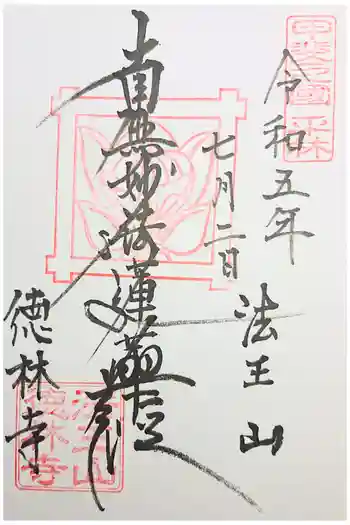 甲斐之國
令和五年
七月二日
法王山
南無妙法蓮華経
徳林寺
法王山
徳林寺